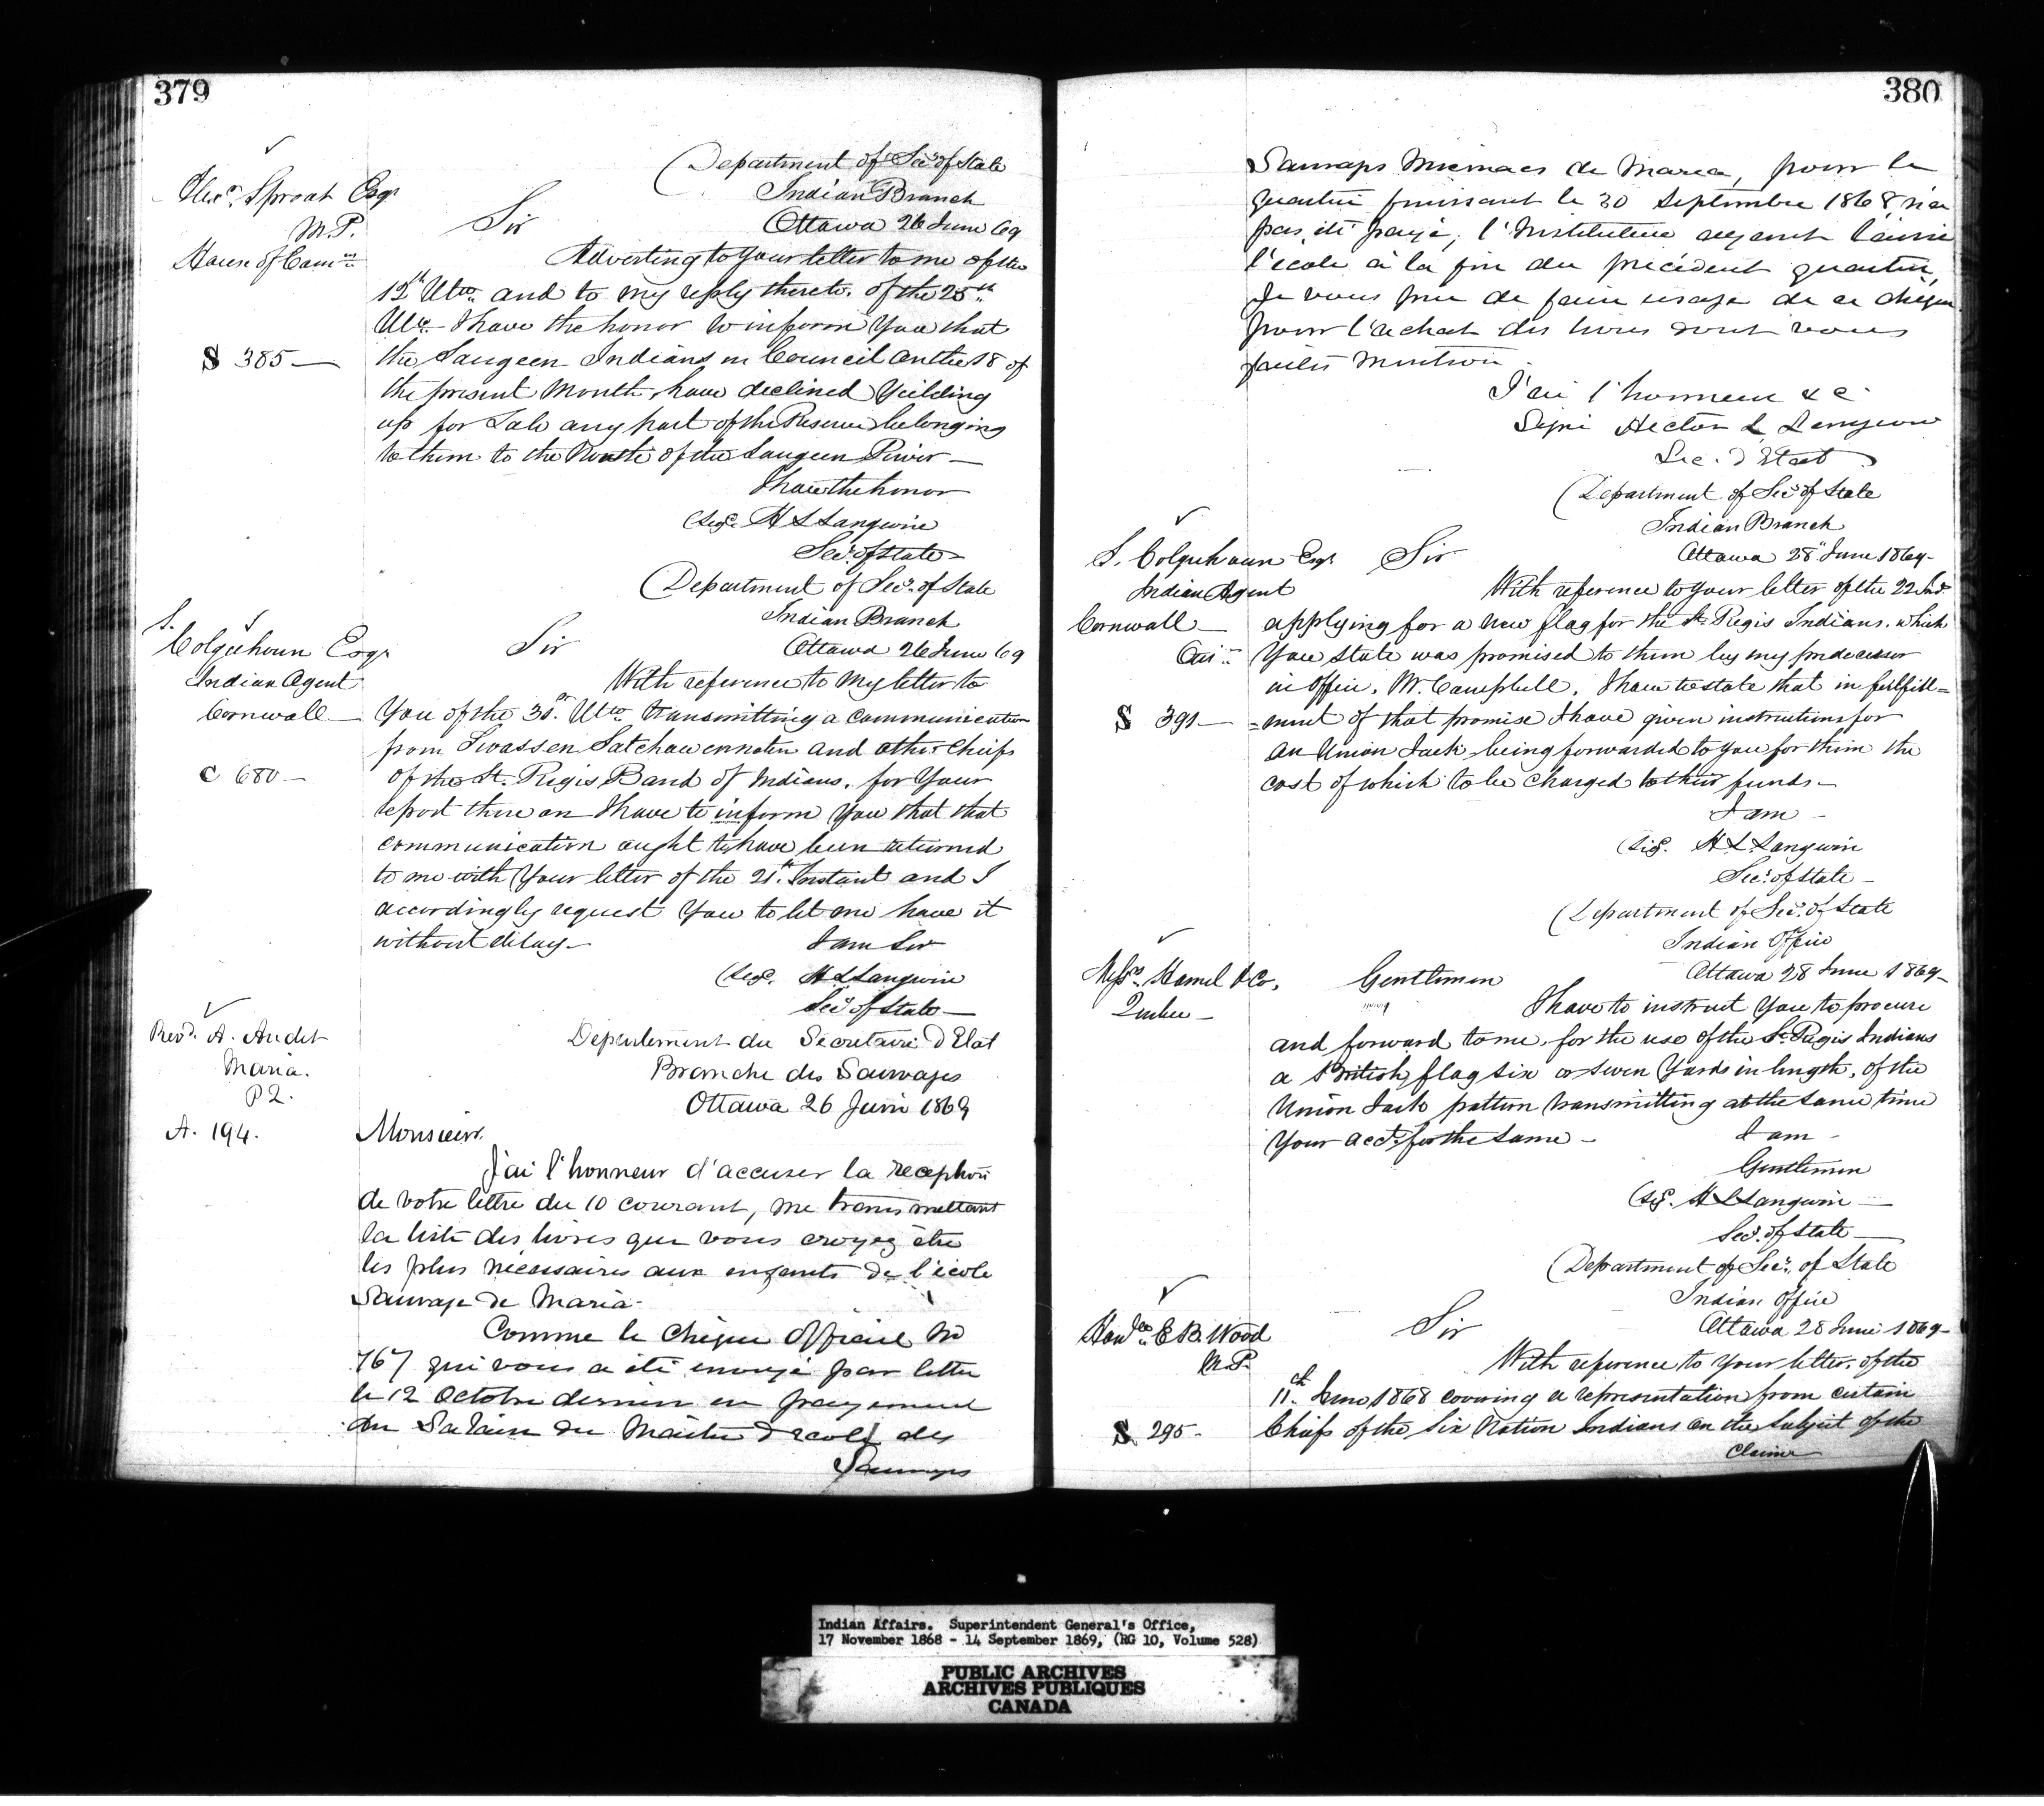 379
Department of Secy of State
Indian Branch
Ottawa 26 June 69
Alexr. Sproat Esqr
M.P.
House of Comns
Sir
Adverting to your letter to me of the
12th Ulto. and to my reply thereto. of the 25th
Ulto. I have the honor to inform you that
S 385 —
the Saugeen Indians in Council on the 18 of
the present Month, have declined yeilding
up for Sale any part of the Reserve belonging
to them to the North of the Saugeen River —
I have the honor
(Sigd. H L Langevin
Secy. of State —
Department of Secy. of State
Indian Branch
Ottawa 26 June 69
S.
Colquhoun Esqr
Indian Agent
Cornwall —
Sir
With reference to my letter to
You of the 31st. Ulto. transmitting a communication
from Swassen Satchawennoten and other Chiefs
C 680 —
of the St. Regis Band of Indians. for Your
report there on I have to inform You that that
communication ought to have been returned
to me with Your letter of the 21st. Instant and I
accordingly request You to let me have it
without delay —
I am Sir
(Sigd. H L Langevin
Secy of State —
Revd. A. Audet
Maria.
P2.
Département du Secretaire d'Etat
Branche des Sauvages
Ottawa 26 Juin 1869
A. 194.
Monsieur.
J'ai l'honneur d'accuser la reception
de votre lettre du 10 courant, me transmettant
la liste des livres que vous croyez être
les plus nécessaires aux enfants de l'école
Sauvage de Maria.
Comme le chèque officiel No
767 qui vous a été envoyé par lettre
le 12 Octobre dernier en payement
du Salaire du Maître d'ecole des
Sauvages
380
Sauvages Micmacs de Maria, pour le
quartier finissant le 30 Septembre 1868, n'a
pas été payé, l'Instituteur ayant laissé
l'école à la fin du précédent quartier,
Je vous prie de faire usage de ce chèque
pour l'achat des livres dont vous
faites mention.
J'ai l'honneur &c
Signé Hector L Langevin
Sec. d'Etat
Department of Secy of State
Indian Branch
Ottawa 28th June 1869 —
S. Colquhoun Esqr.
Indian Agent
Cornwall —
Ont
Sir
With reference to your letter of the 22 Ind.
applying for a new flag for the St. Regis Indians. which
You state was promised to them by my predecessor
in Office, Mr. Campbell. I have to state that in fulfill=
S 391 —
=ment of that promise I have given instructions for
an Union Jack being forwarded to you for them the
cost of which to be charged to their funds —
I am —
(Sigd. H L Langevin
Secy. of State —
Department of Secy. of State
Indian Office
Ottawa 28 June 1869 —
Messrs. Hamel & Co.
Quebec —
Gentlemen
I have to instruct You to procure
and forward to me. for the use of the St. Regis Indians
a British flag six or seven Yards in length, of the
Union Jack pattern transmitting at the same time
Your acct. for the same —
I am —
Gentlemen
(Sigd. H L Langevin —
Secy. of State —
Department of Secy. of State
Indian Office
Ottawa 28 June 1869 —
Honble. E B. Wood
M.P.
Sir
With reference to your letter. of the
11th. June 1868 covering a representation from certain
S. 295 —
Chiefs of the Six Nation Indians on the Subject of the
Claims
Indian Affairs. Superintendent General's Office,
17 November 1868 - 14 September 1869, (RG 10, Volume 528)
PUBLIC ARCHIVES
ARCHIVES PUBLIQUES
CANADA